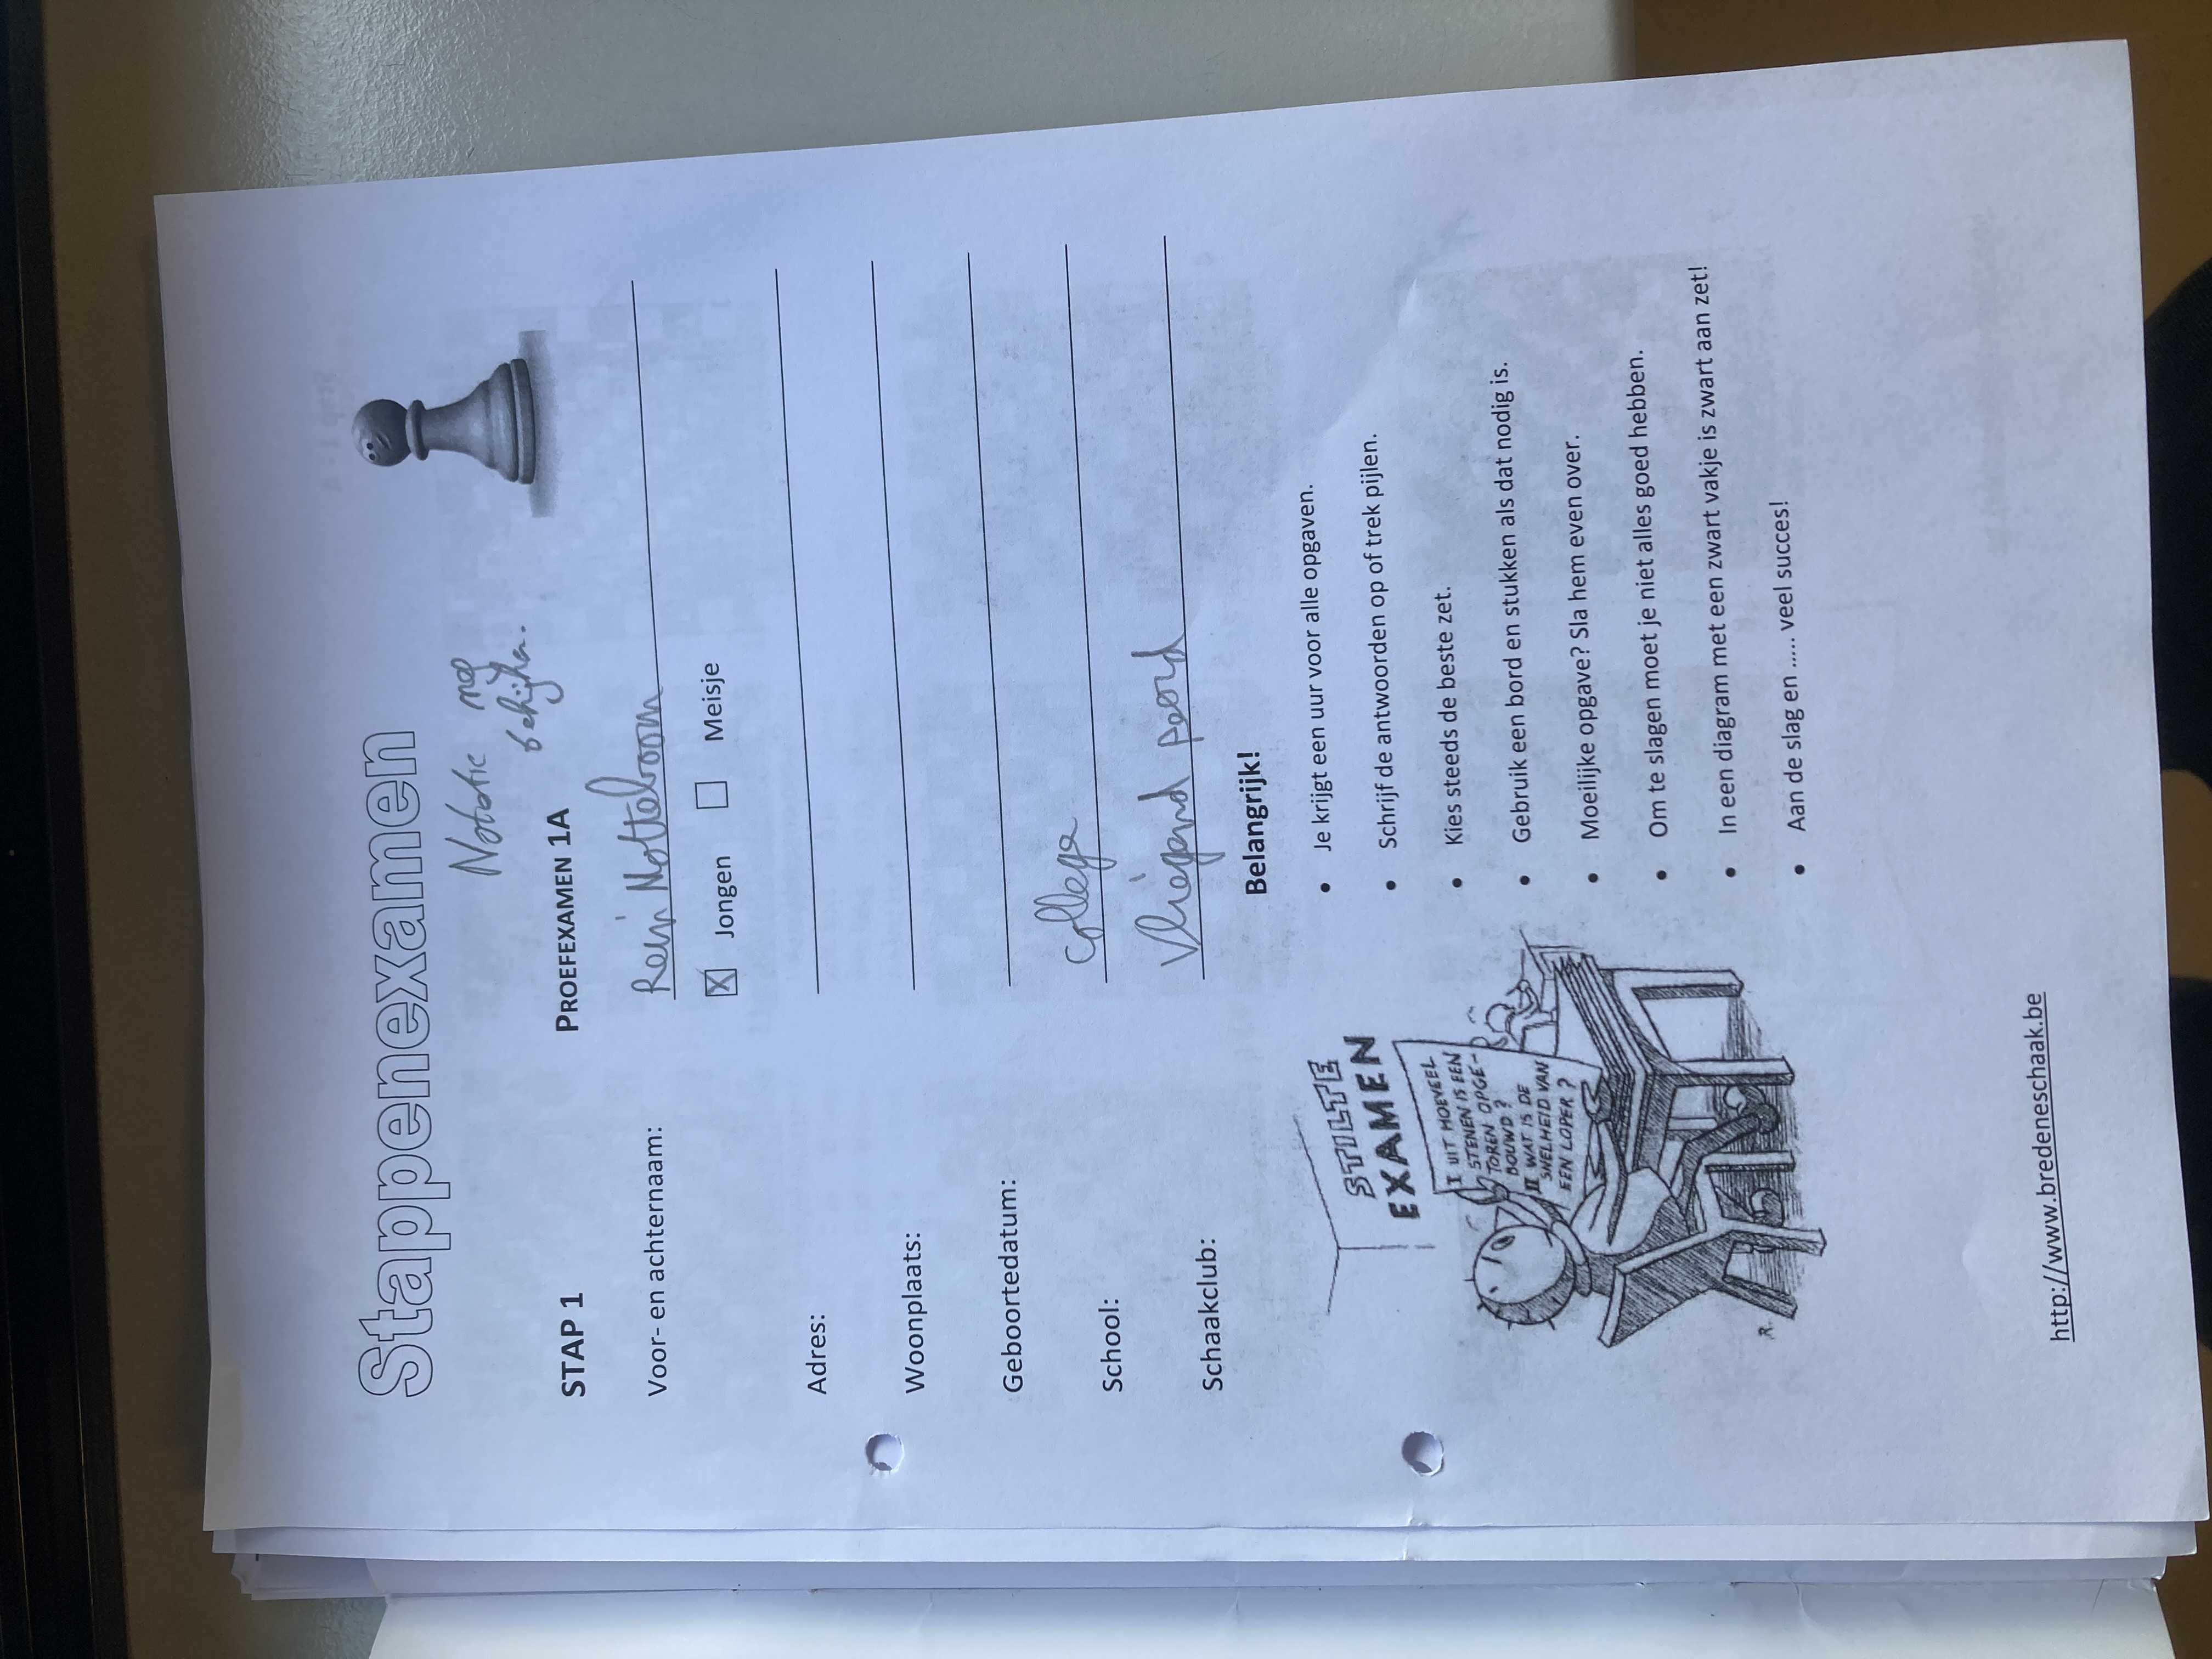 Stappenexamen
Notatie nog
bekijken.
STAP 1 PROEFEXAMEN 1A
Voor- en achternaam: Rein Notteboom
☒ Jongen ☐ Meisje
Adres:
Woonplaats:
Geboortedatum:
School: College
Schaakclub: Vliegend peerd
Belangrijk!
• Je krijgt een uur voor alle opgaven.
• Schrijf de antwoorden op of trek pijlen.
• Kies steeds de beste zet.
• Gebruik een bord en stukken als dat nodig is.
• Moeilijke opgave? Sla hem even over.
• Om te slagen moet je niet alles goed hebben.
• In een diagram met een zwart vakje is zwart aan zet!
• Aan de slag en ..... veel succes!
STILTE
EXAMEN
I UIT HOEVEEL
STENEN IS EEN
TOREN OPGE-
BOUWD?
II WAT IS DE
SNELHEID VAN
EEN LOPER?
R.
http://www.bredeneschaak.be